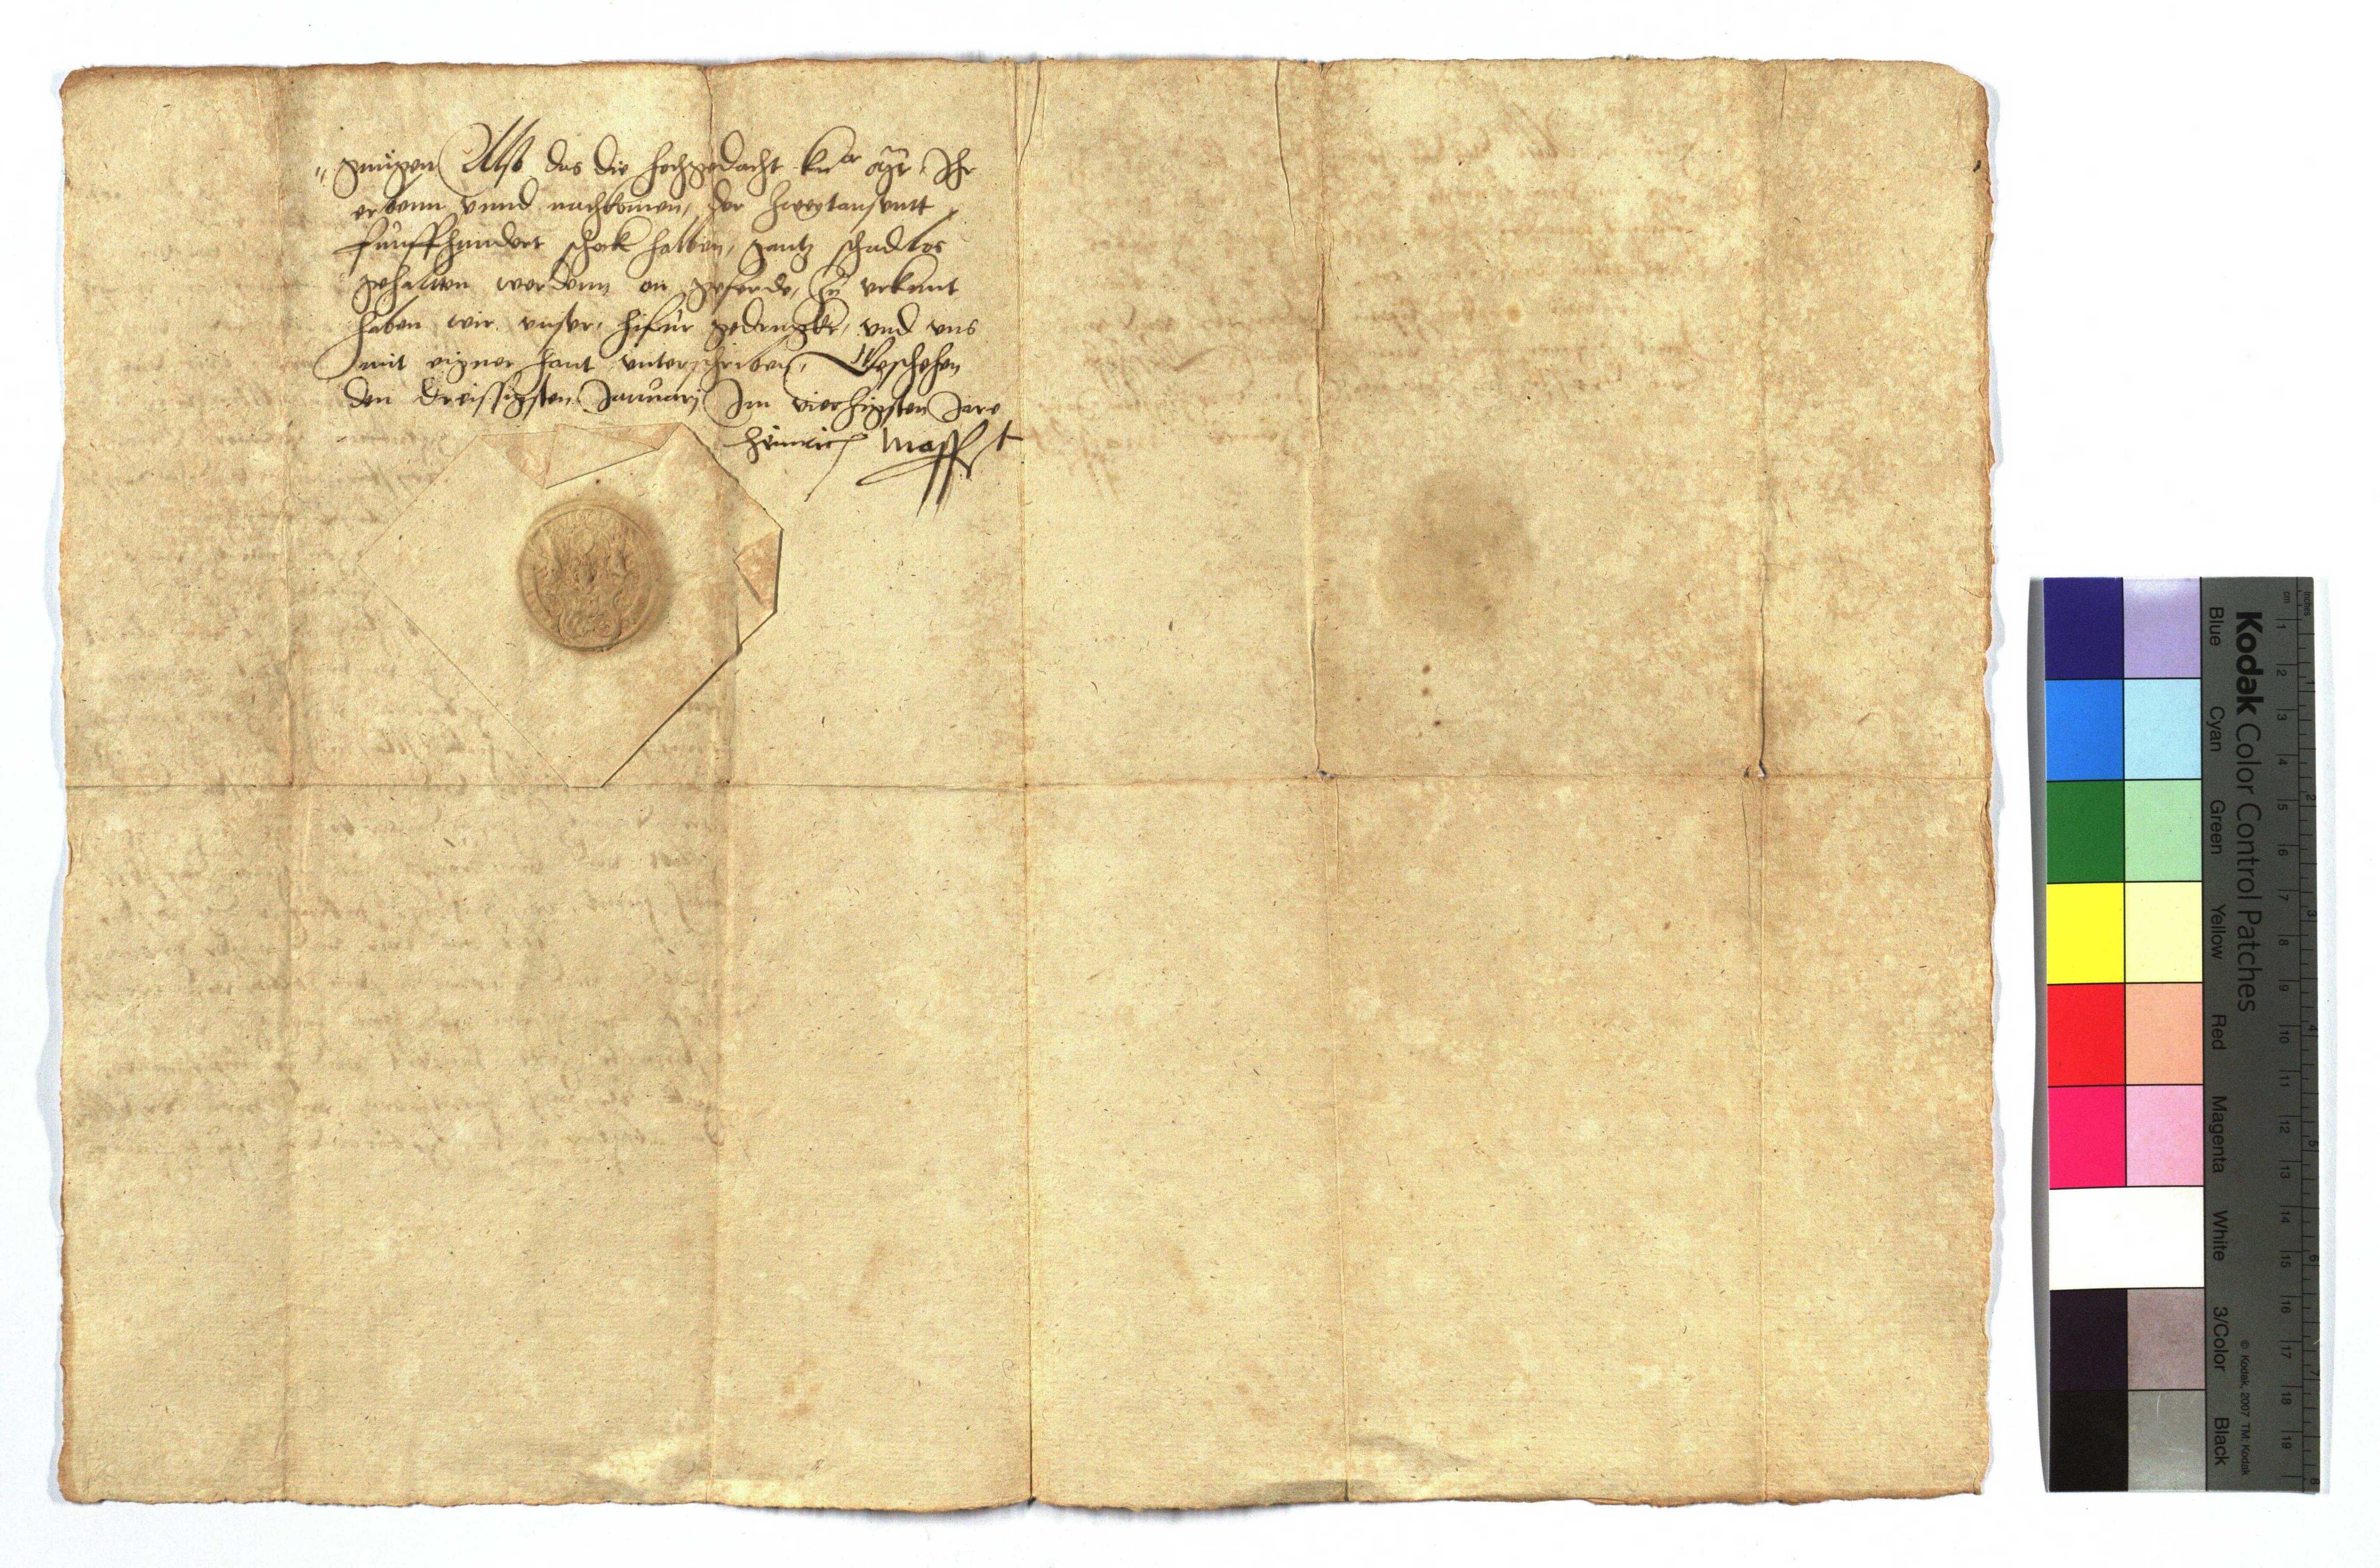 gnugen Also das die hochgedacht kn ar mt Ihr
erbenn vnnd nachkomen, der zweytausentt
funffhundert schock halben, gantz schadlos
gehalten werdenn on geferde, Zu vrkunt
haben wir vnser, hifur gedruckt, vnd vns
mit eigner hant vnterschriben, Geschehen
den dreissigsten Januarj Im vierzigsten Jare
Heinrich
Kodak Color Control Patches
Blue Cyan Green Yellow Red Magenta White 3/Color Black
© Kodak, 2007 TM: Kodak
inches 1 2 3 4 5 6 7 8
cm 1 2 3 4 5 6 7 8 9 10 11 12 13 14 15 16 17 18 19